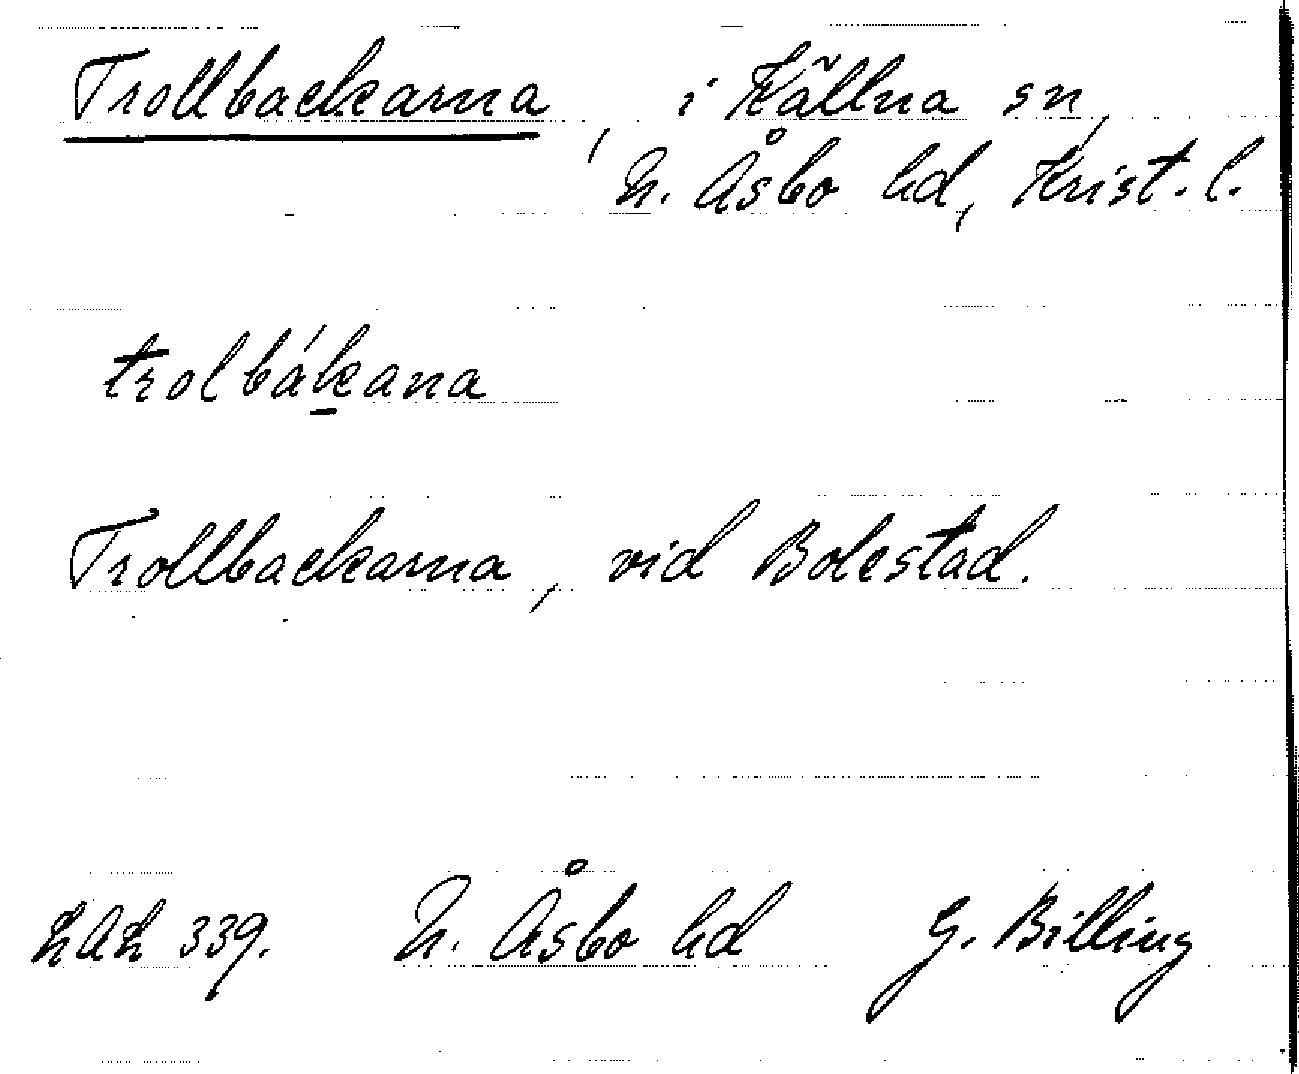 Trollbackarna, i Källna sn,
N. Åsbo hd, Krist. l.
trolbákana
Trollbackarna, vid Bolestad.
LAL 339. N. Åsbo hd G. Billing